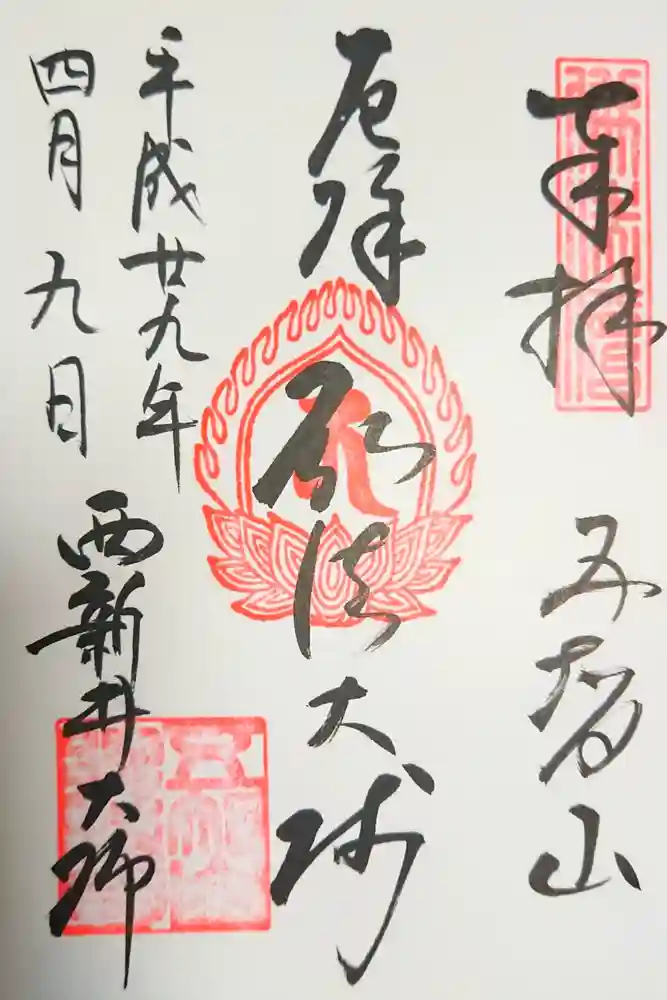 奉拝 五智山
厄除弘法大師
平成廿九年
四月九日
西新井大師